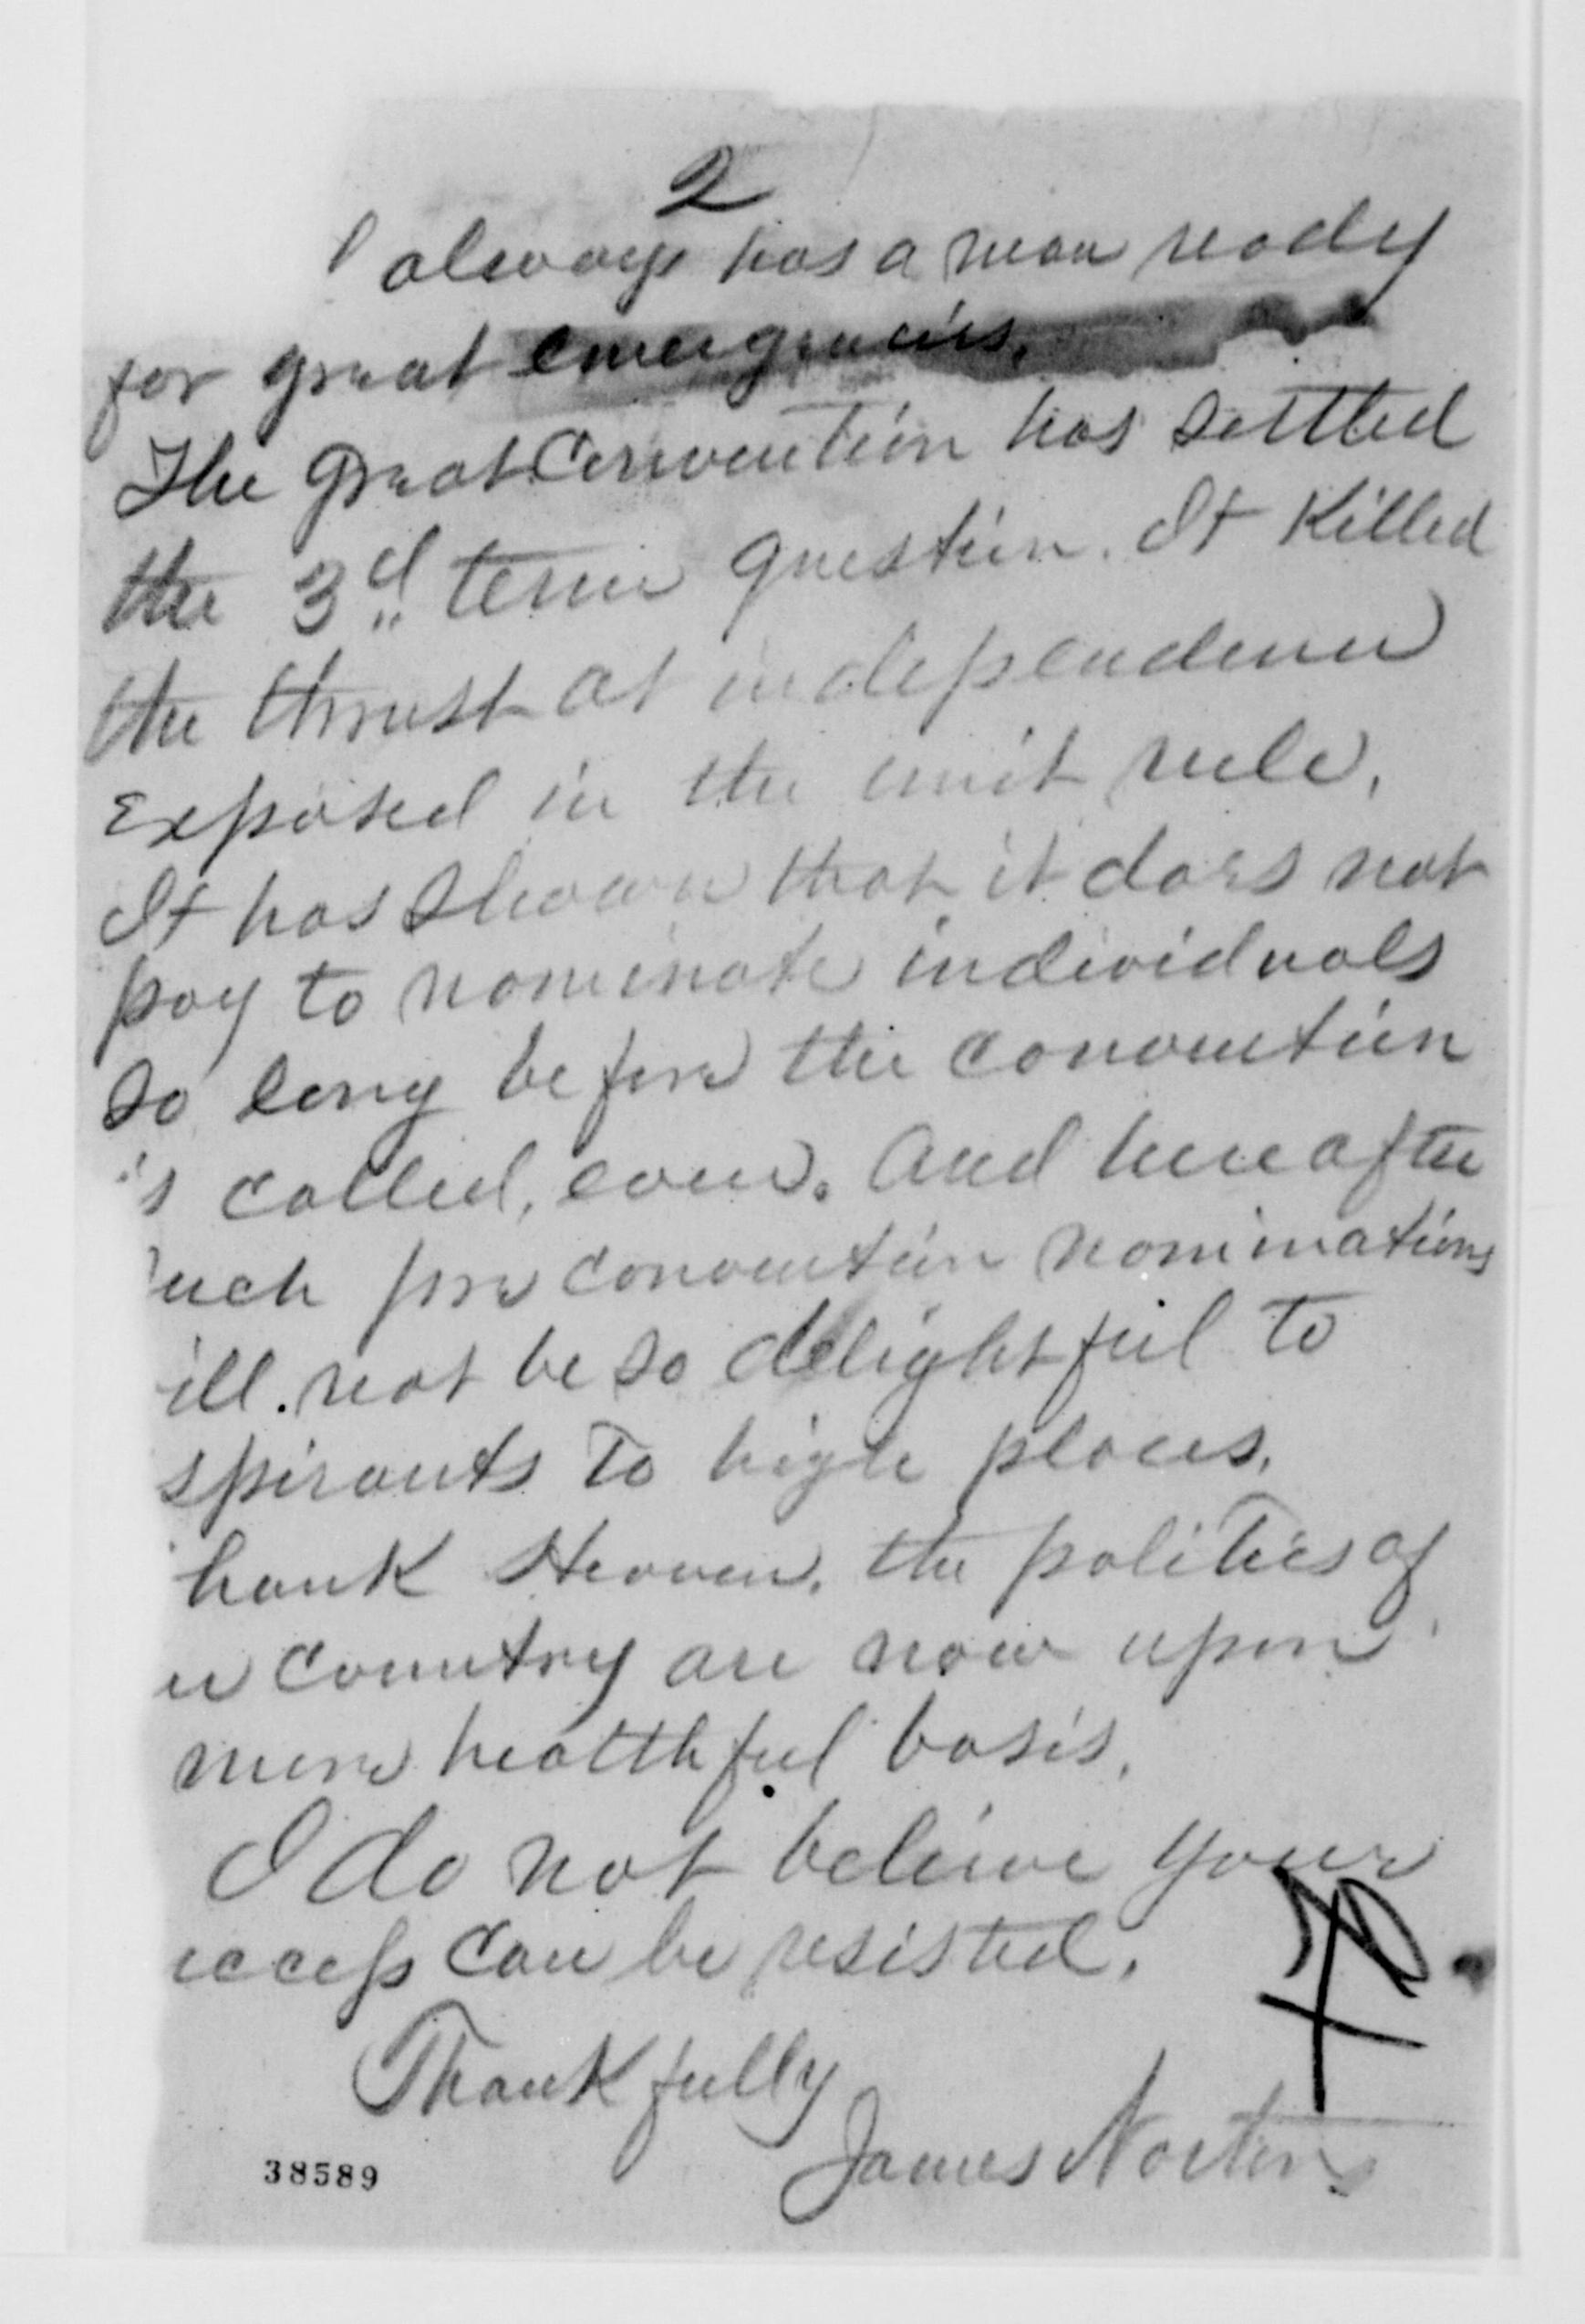 2
always has a man ready
for great emergencies.
The great Convention has settled
the 3d term question. It Killed
the thrust at independence
Exposed in the unit rule.
It has shown that it does not
pay to nominate individuals
so long before the convention
is called, even. And hereafter
such pre convention nominations
ill. not be so delightful to
spirants to high places.
hank Heaven. the politics of
country are now upon
more healthful basis.
I do not believe your
uccess can be resisted.
Thankfully
James Norton
38589